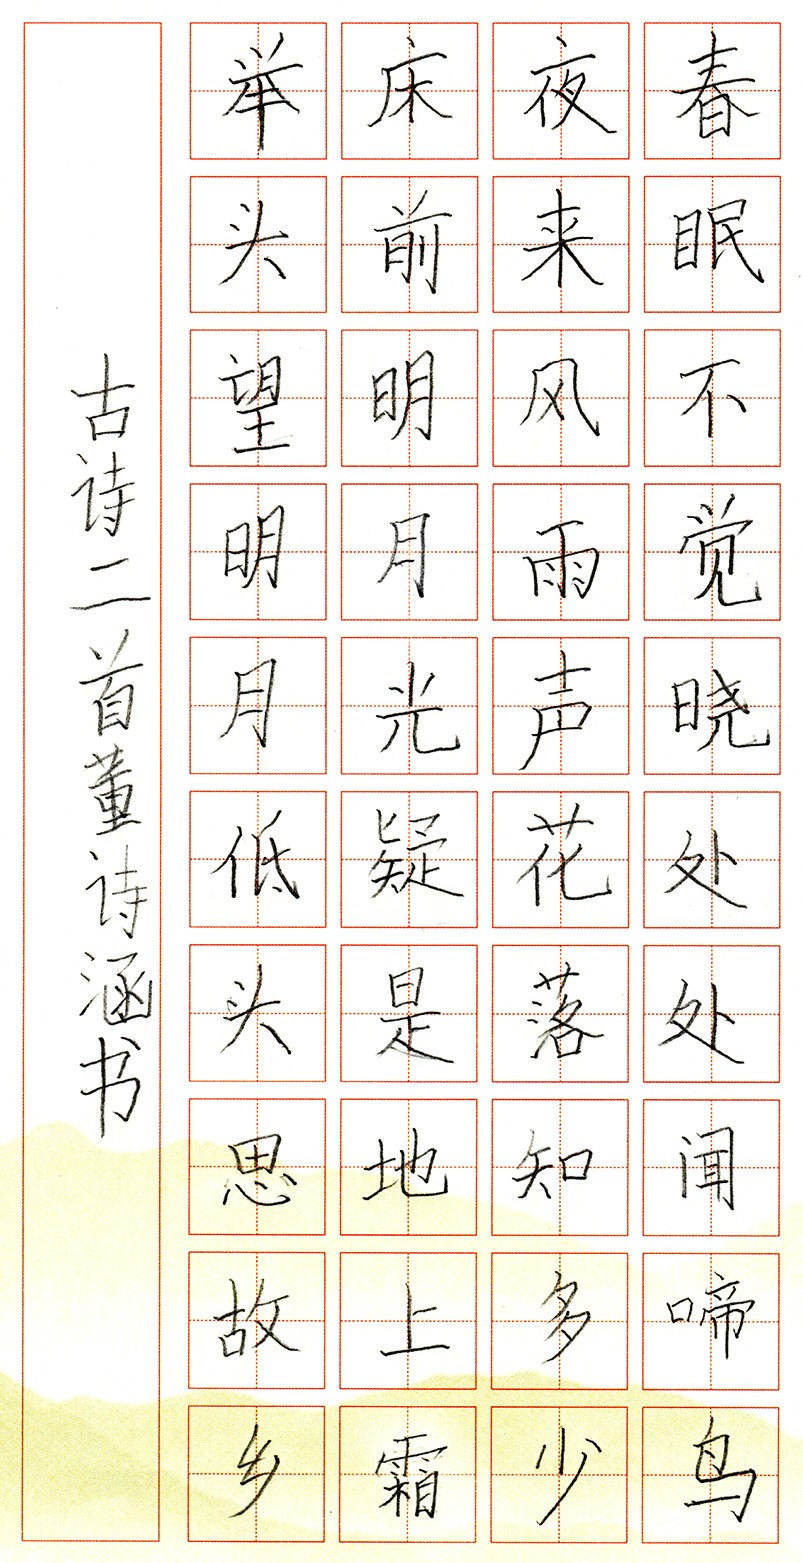 春眠不觉晓处处闻啼鸟
夜来风雨声花落知多少
床前明月光疑是地上霜
举头望明月低头思故乡
古诗二首董诗涵书